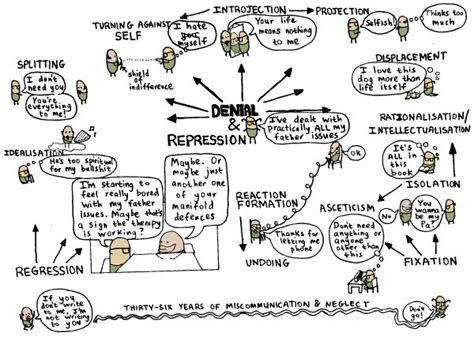 INTROJECTION → PROJECTION
TURNING AGAINST
SELF
I hate
you
myself
shield of
indifference
Your life
means nothing
to me
Selfish!
Thinks too
much
SPLITTING
I don't
need you
You're
everything
to me!
DISPLACEMENT
I love this
dog more than
life itself
DENIAL
&
REPRESSION
I've dealt with
practically ALL my
father issues
OK
RATIONALISATION/
INTELLECTUALISATION
It's
ALL in
this
book
IDEALISATION
He's too spiritual
for my bullshit
I'm starting to
feel really bored
with my father
issues. Maybe that's
a sign the therapy
is working?
Maybe. Or
maybe just
another one
of your
manifold
defences
REACTION
FORMATION
Thanks for
letting me
phone
UNDOING
ASCETICISM
Don't need
anything or
anyone
other than
this
ISOLATION
No
You
wanna
be my
Pa?
FIXATION
REGRESSION
If you
don't write
to me, I'm
not writing
to you
THIRTY-SIX YEARS OF MISCOMMUNICATION & NEGLECT
Don't
go!